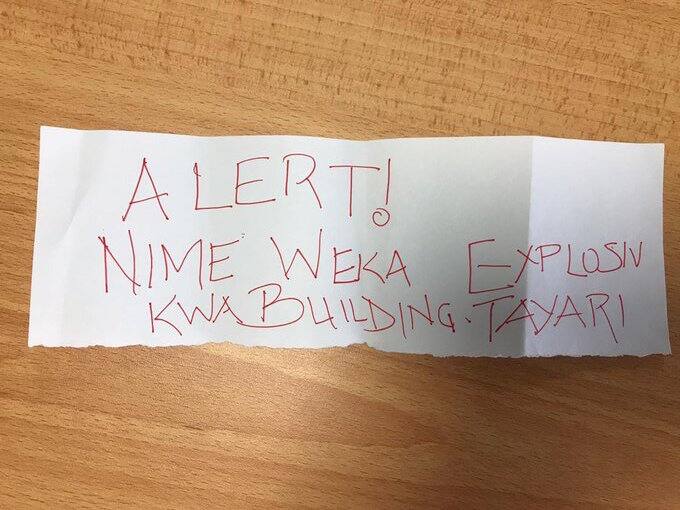 ALERT!
NIME WEKA EXPLOSIV
KWA BUILDING. TAYARI